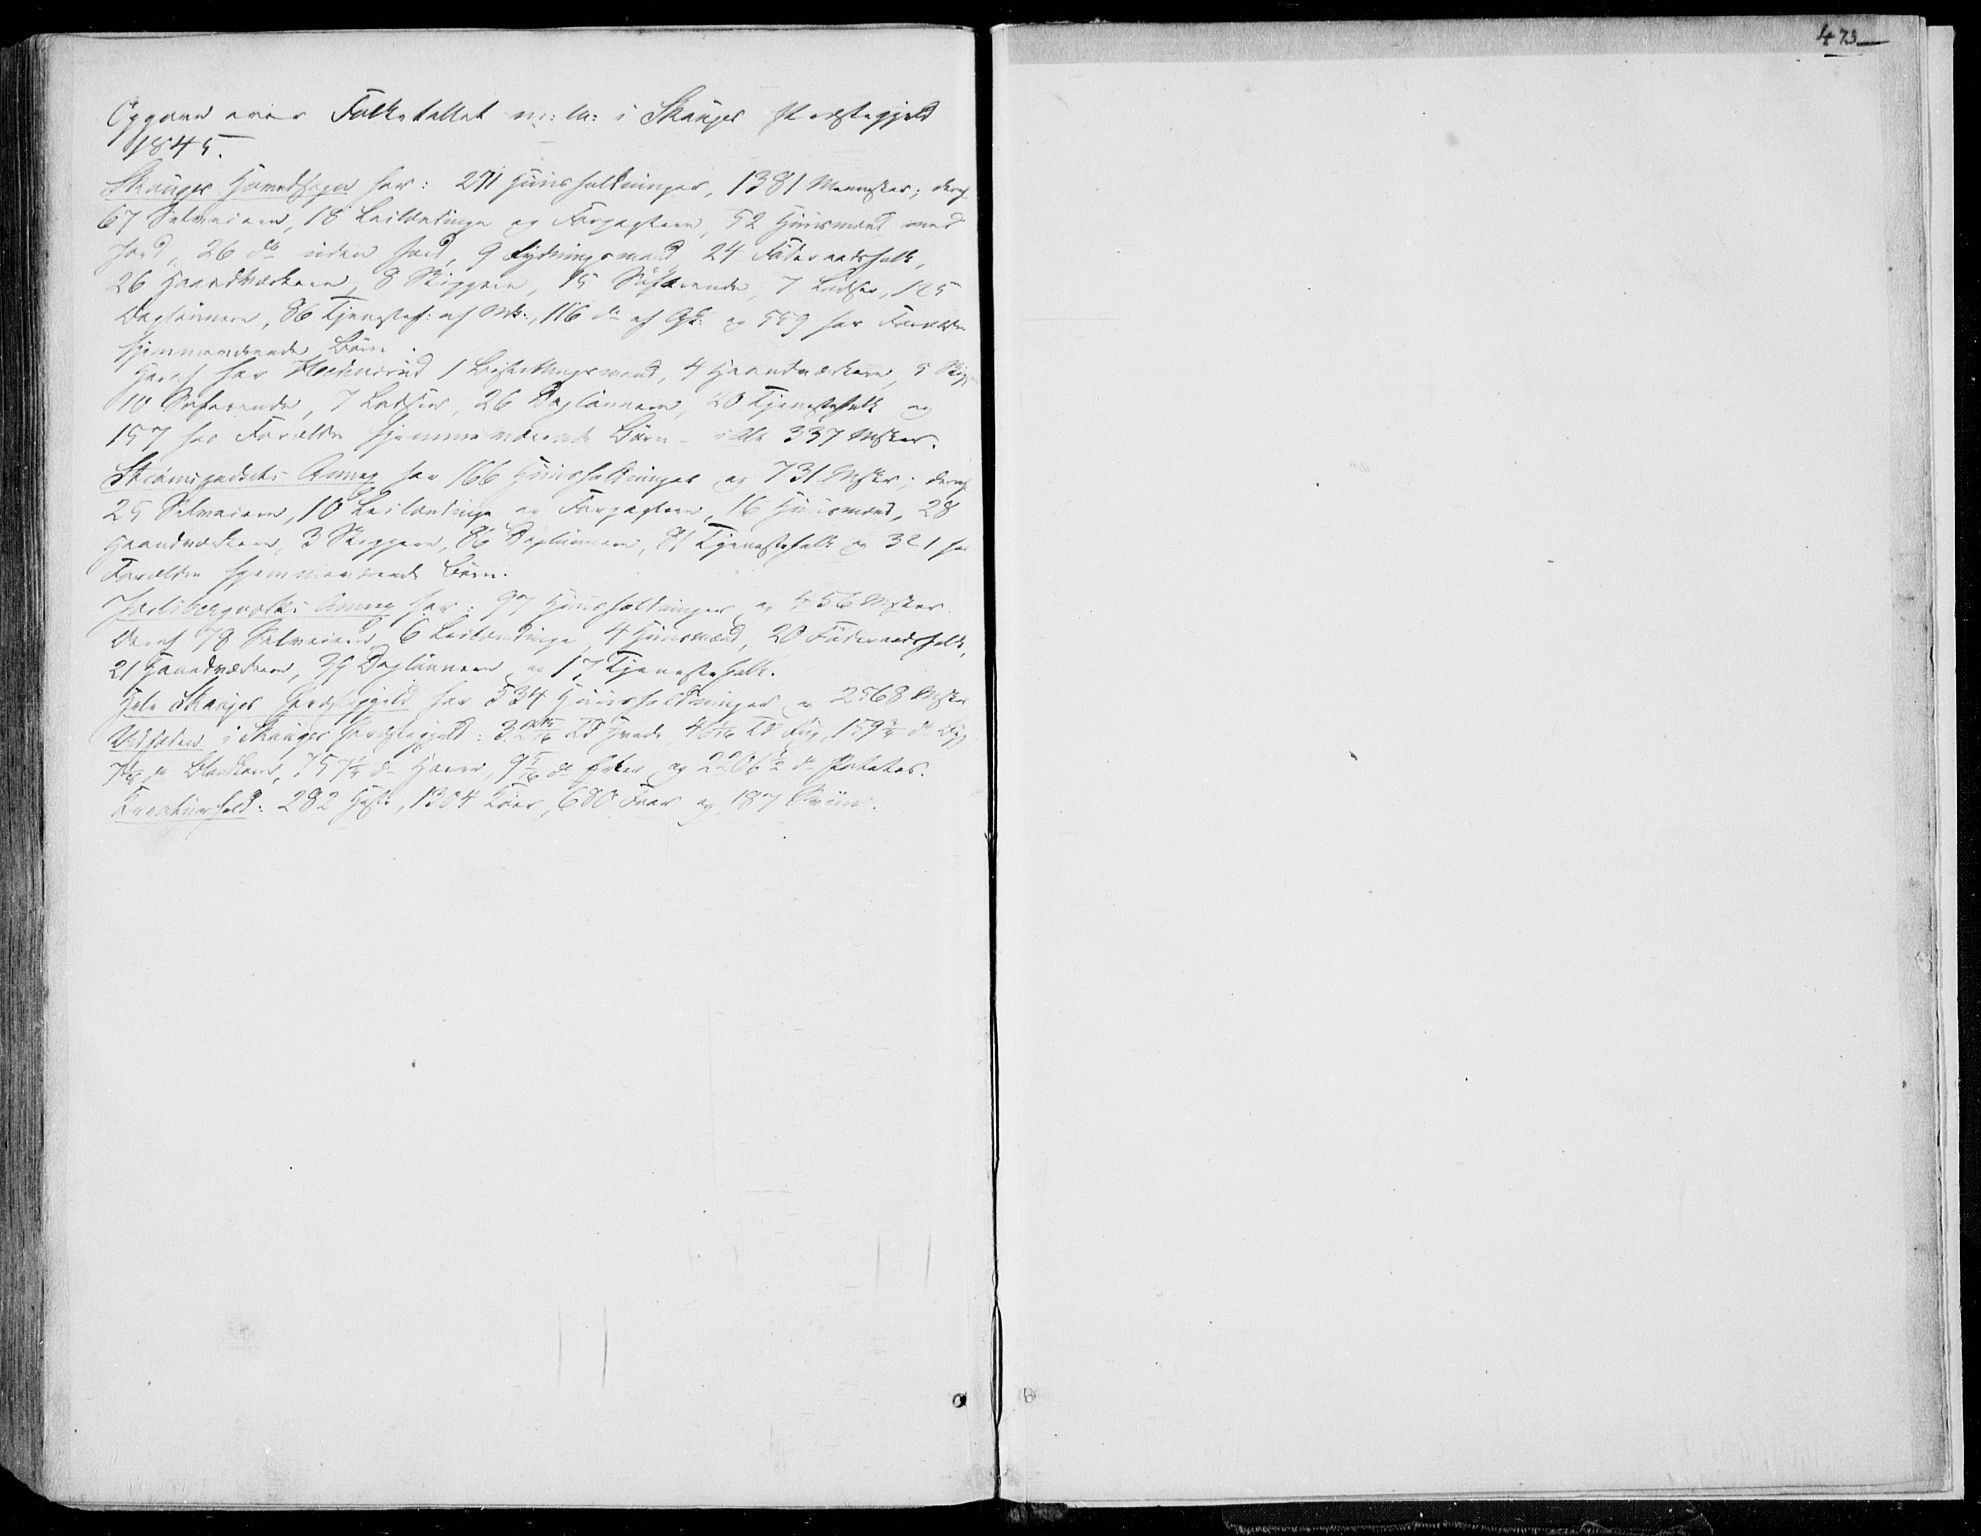 Opgave over Folketallet m: m: i Skauger Præstegjeld
1845.
Skauger Hovedsogn har: 271 Huusholdninger, 1381 Mennesker; deraf
67 Selveiere, 18 Leilændinge og Forpagtere, 52 Huusmænd med
Jord, 26 do uden Jord, 9 Rydningsmænd, 24 Föderaadsfolk,
26 Haandværkere, 8 Skippere, 15 Söfarende, 7 Lodser, 125
Daglönnere, 86 Tjenestef: af Mk:, 116 do af Qk: og 559 hos Forældre
hjemmeværende Börn.
Heraf har Holmsrud 1 Bestillingsmand, 4 Haandværkere, 5
10 Söfarende, 7 Lodser, 26 Daglönnere, 20 Tjenestefolk og
157 hos Forældre hjemmeværende Börn - 337 Msker.
Strömspadets Annex har 166 Huusholdninger og 731 Msker; deraf
25 Selveiere, 10 Leilændinge og Forpagtere, 16 Huusmænd, 28
Haandværkere, 3 Skippere, 86 Daglönnere, 81 Tjenestefolk og 321 hos
Forældre hjemmeværende Börn.
Annex har: 97 Huusholdninger og 456 Msker.
Deraf 78 Selveiere, 6 Leilændinge, 4 Huusmænd, 20 Föderaadsfolk,
21 Haandværkere, 39 Daglönnere og 17 Tjenestefolk.
Hele Skauger Præstegjeld har 534 Huusholdninger og 2568 Msker
Udsæden i Skauger Præstegjeld: Td Hvede, Td Rug, 159 3/4 do Byg
do Blandkorn, 757 1/4 do Havre, 9 5/16 do Erter og 2206 1/2 do Potetes.
Kreaturhold: 282 Heste, 1304 Köer, 680 Faar og 187 Sviin.
473